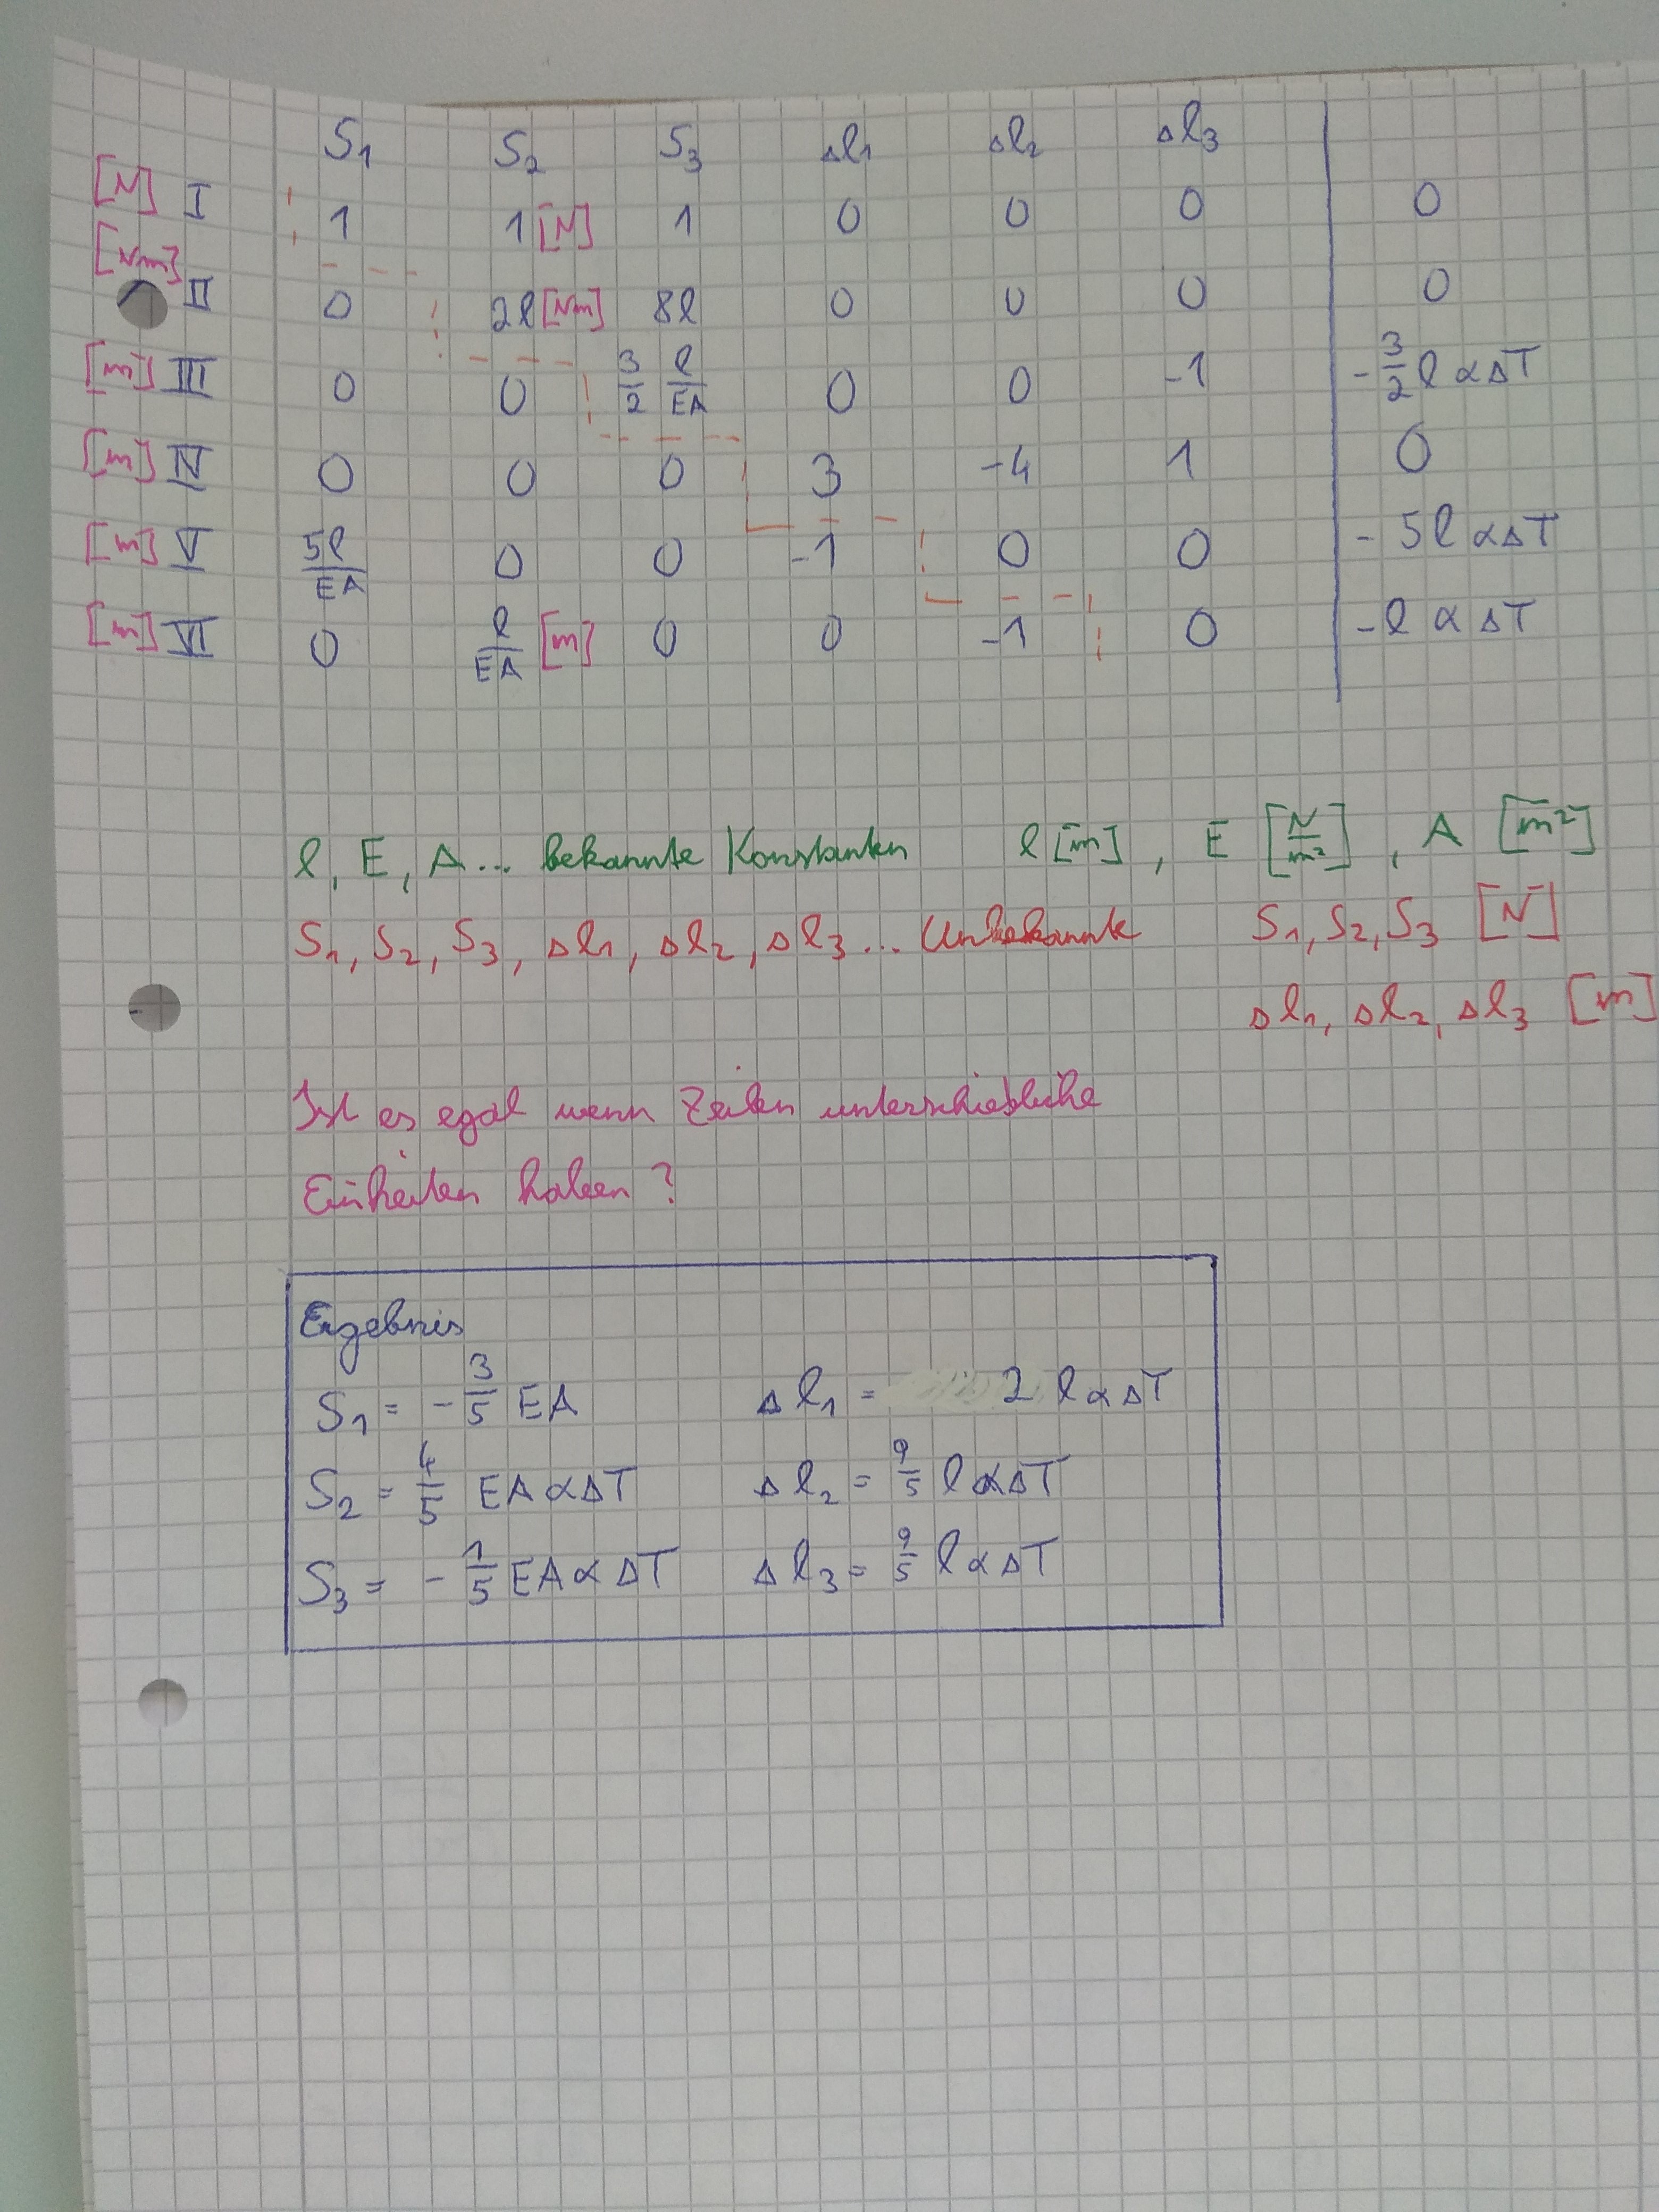 S₁ S₂ S₃ Δl₁ Δl₂ Δl₃
[N] I 1 1 [N] 1 0 0 0 | 0
[Nm] II 0 2l [Nm] 8l 0 0 0 | 0
[m] III 0 0 3/2 l/EA 0 0 -1 | -3/2 l αΔT
[m] IV 0 0 0 3 -4 1 | 0
[m] V 5l/EA 0 0 -1 0 0 | -5l αΔT
[m] VI 0 l/EA [m] 0 0 -1 0 | -l αΔT
l, E, A... bekannte Konstanten l [m], E [N/m²], A [m²]
S₁, S₂, S₃, Δl₁, Δl₂, Δl₃... Unbekannte S₁, S₂, S₃ [N]
Δl₁, Δl₂, Δl₃ [m]
Ist es egal wenn Zeilen unterschiedliche
Einheiten haben?
Ergebnis
S₁ = -3/5 EA Δl₁ = 2 lαΔT
S₂ = 4/5 EAαΔT Δl₂ = 9/5 lαΔT
S₃ = -1/5 EAαΔT Δl₃ = 9/5 lαΔT